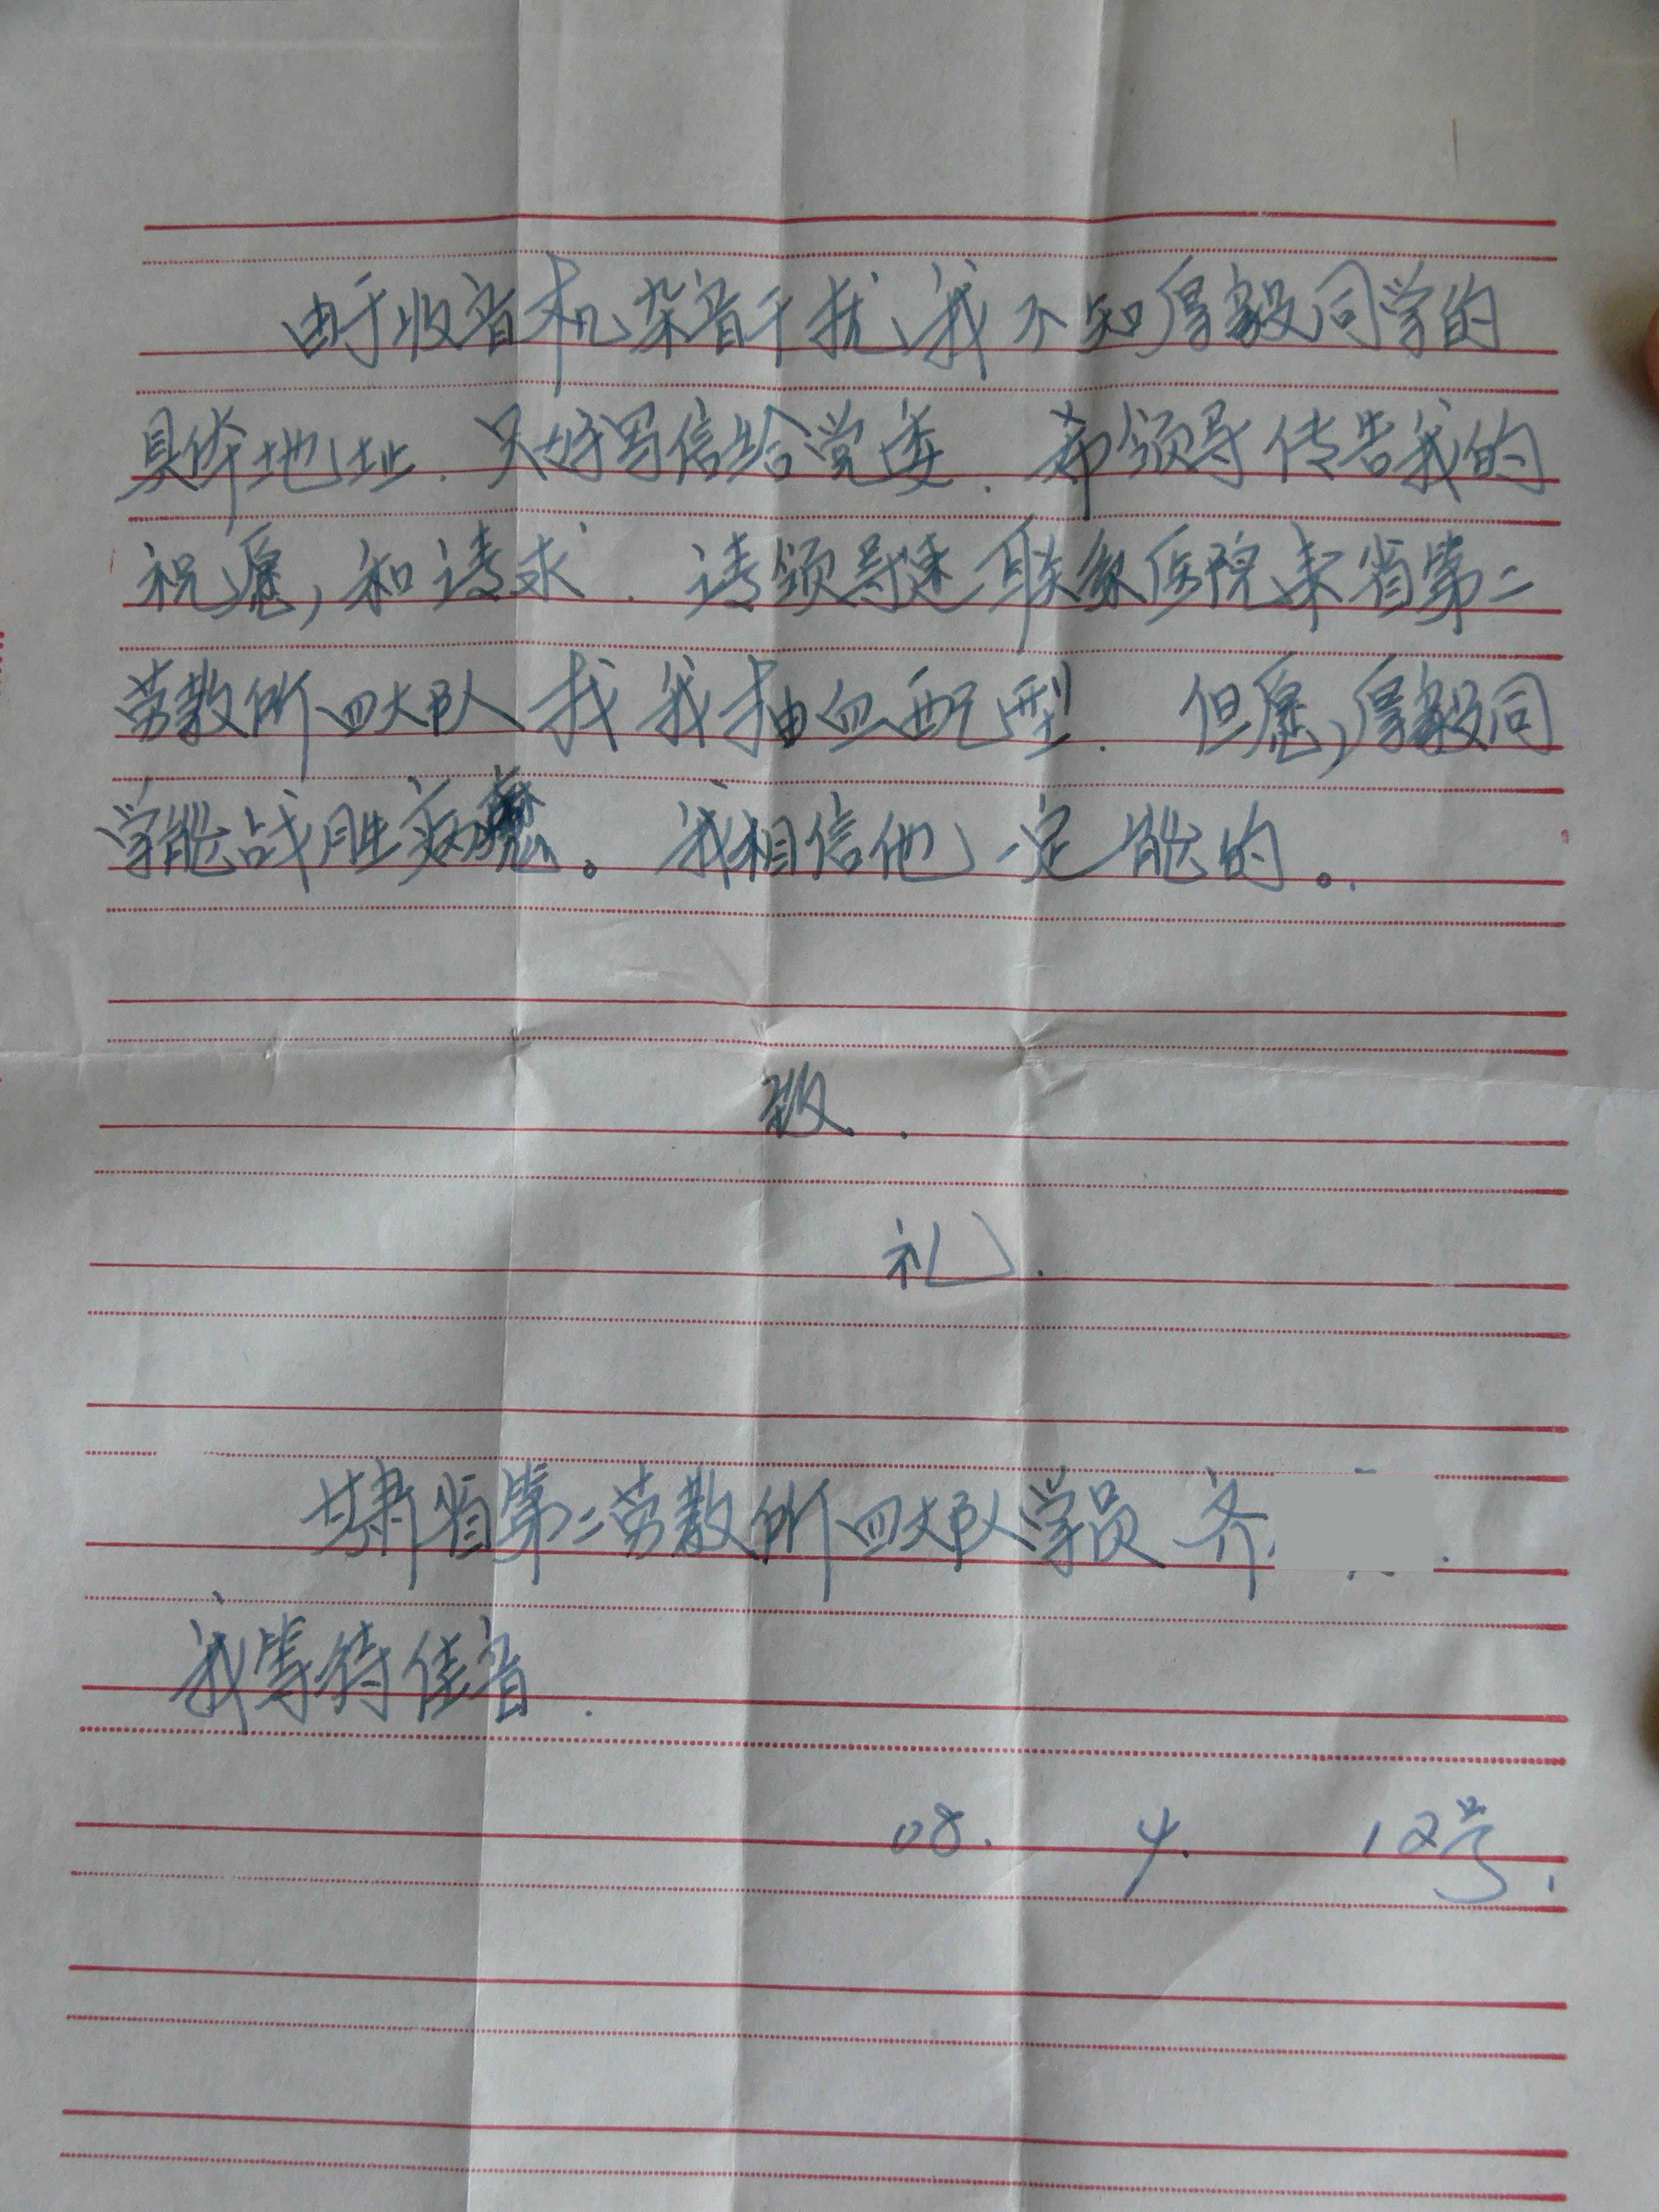 由于收音机杂音干扰,我不知厚毅同学的
具体地址.只好写信给党委.希领导传告我的
祝愿,和请求.请领导速联系医院来省第二
劳教所四大队找我抽血配型.但愿,厚毅同
学能战胜病魔。我相信他一定能的。.
致.
礼.
甘肃省第二劳教所四大队学员 齐
我等待佳音.
08. 4. 12号.